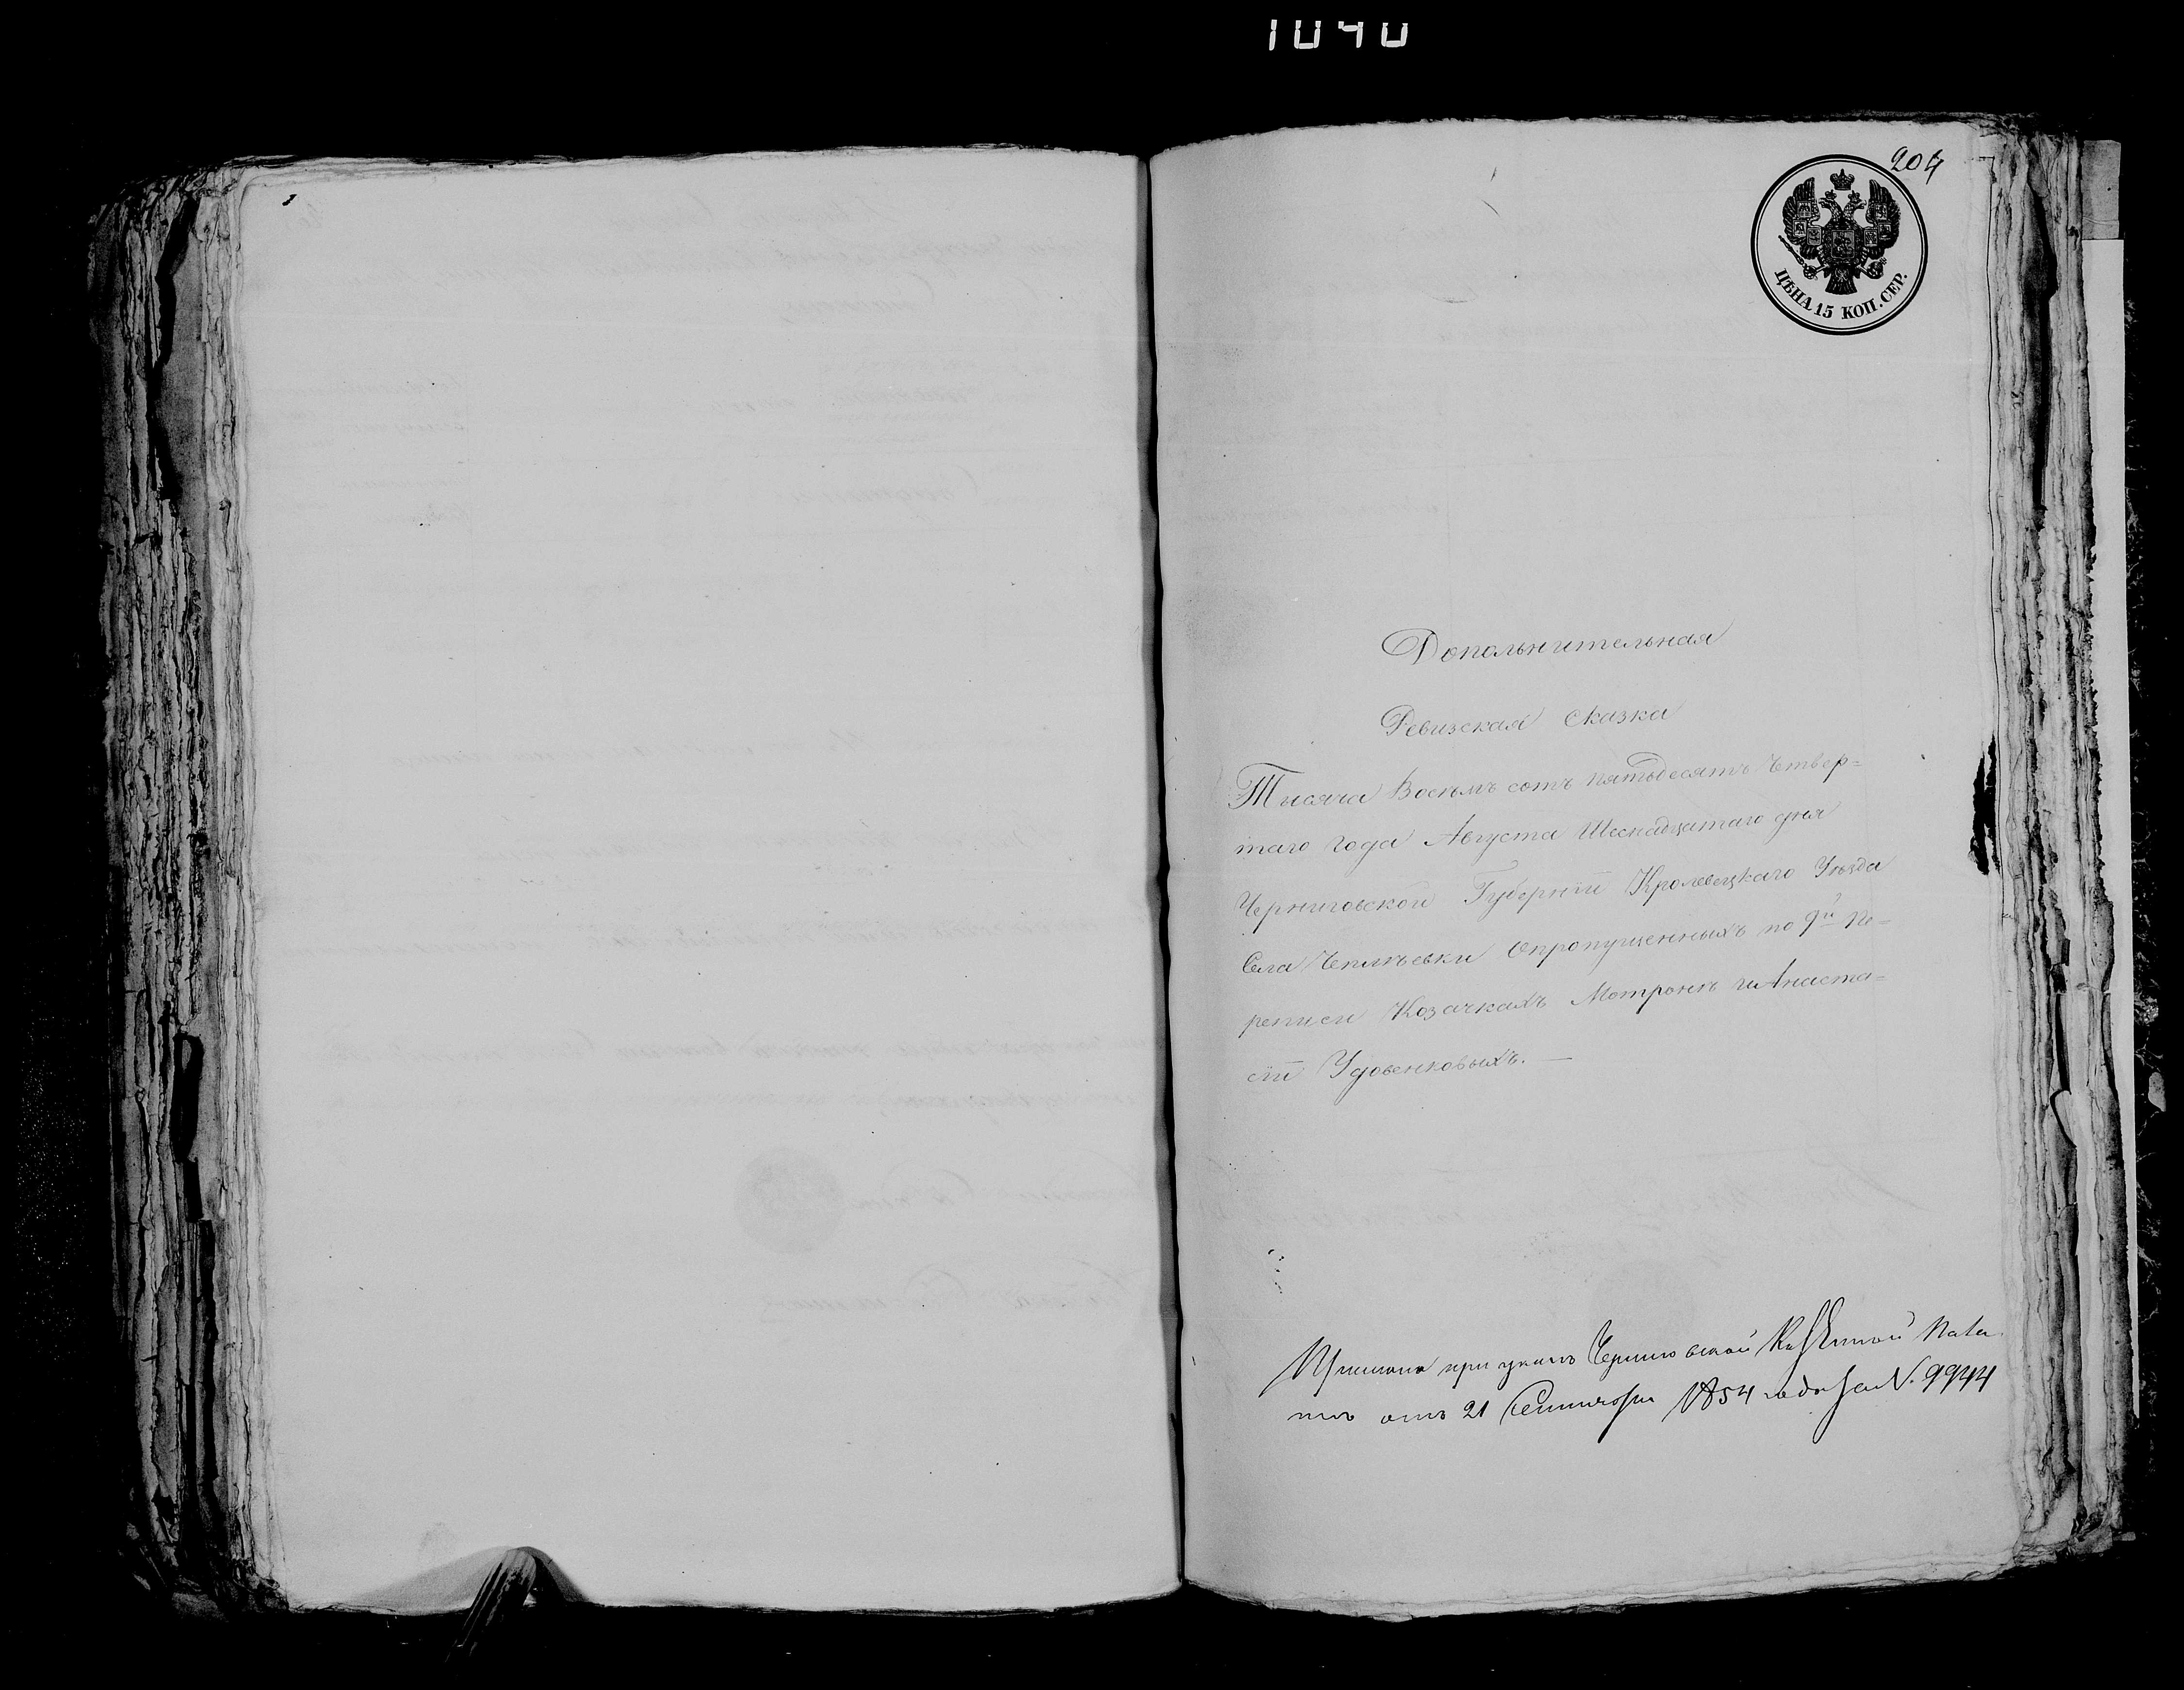 1040
204
ЦѢНА 15 КОП. СЕР.
Дополнительная
Ревизская Сказка
Тисяча Восѣмъ сотъ пятьдесятъ Четвер=
таго года Августа Шеснадцатаго дня
Черниговской Губерніи Кролевецкаго Уѣзда
Села Чеплѣевки Опропущенныхъ по 9й Пе=
реписи Козачкахъ Мотронѣ и Анаста=
сіи Удовенковыхъ. —
при указѣ Черниговской Казенной Пала
ты отъ 21 Сентября 1854 года за N. 9944